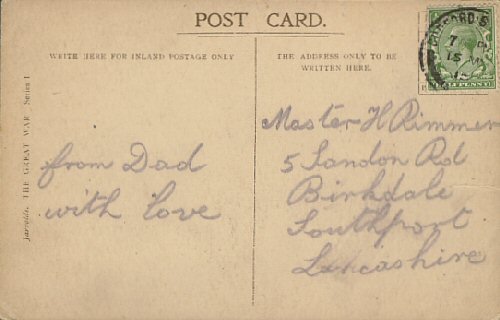 POST CARD.
WRITE HERE FOR INLAND POSTAGE ONLY
THE ADDRESS ONLY TO BE
WRITTEN HERE.
THE GREAT WAR Series 1
from Dad
with love
Master H Rimmer
5 Sandon Rd
Birkdale
Southport
Lancashire